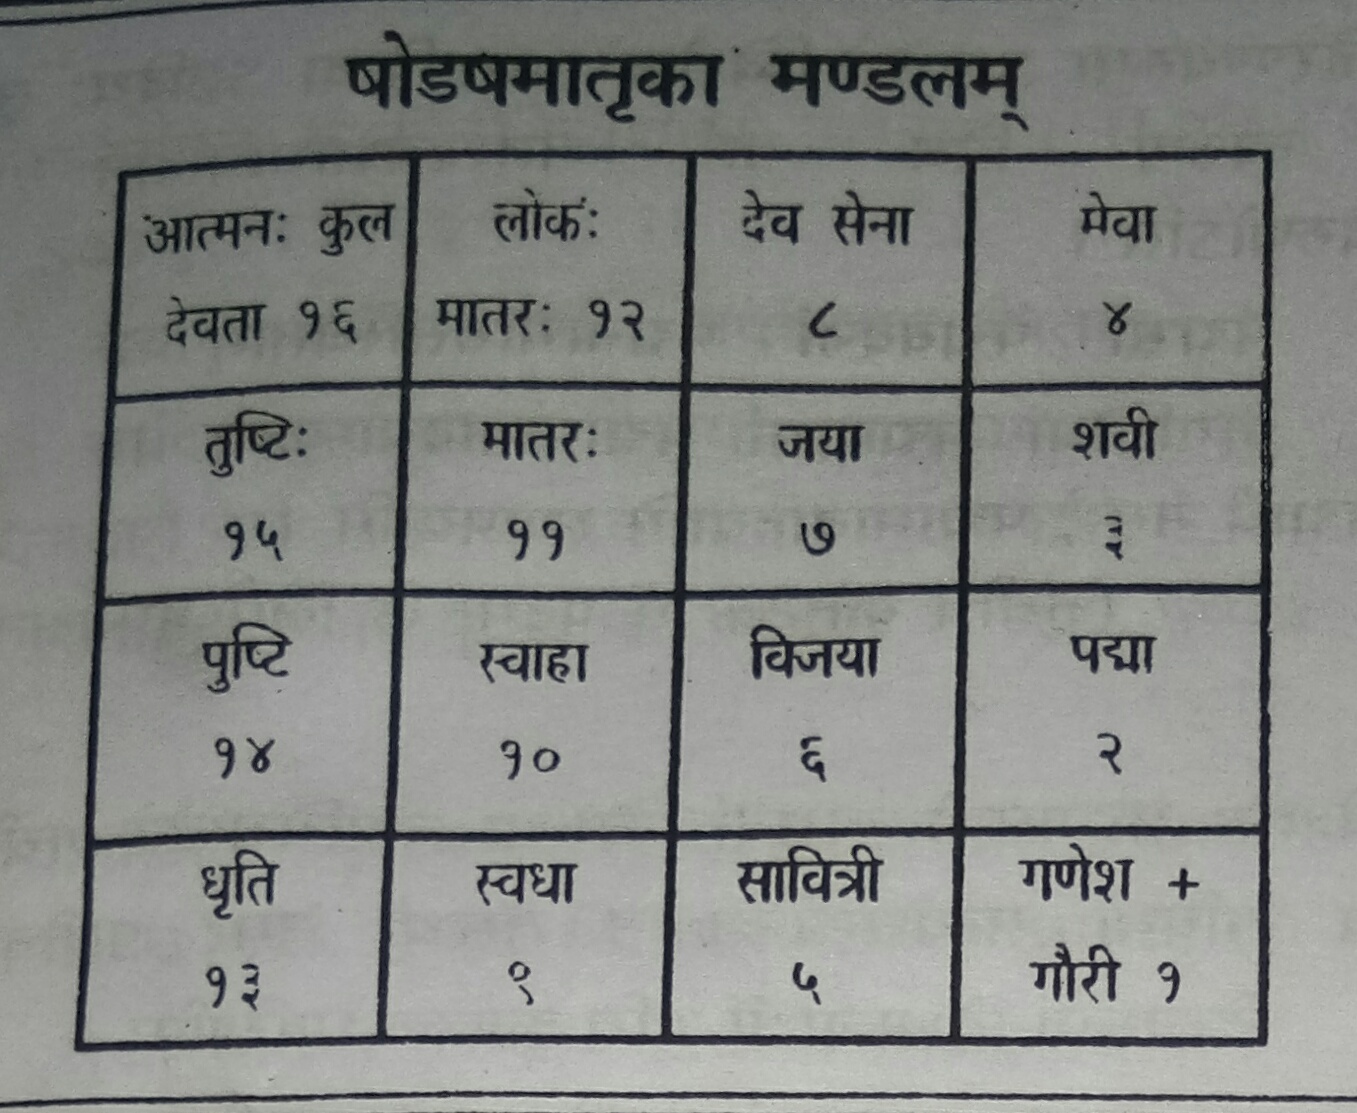 षोडषमातृका मण्डलम्
आत्मनः कुल
देवता १६
लोकः
मातरः १२
देव सेना
८
मेवा
४
तुष्टिः
१५
मातरः
११
जया
७
शवी
३
पुष्टि
१४
स्वाहा
१०
विजया
६
पद्मा
२
धृति
१३
स्वधा
९
सावित्री
५
गणेश +
गौरी १